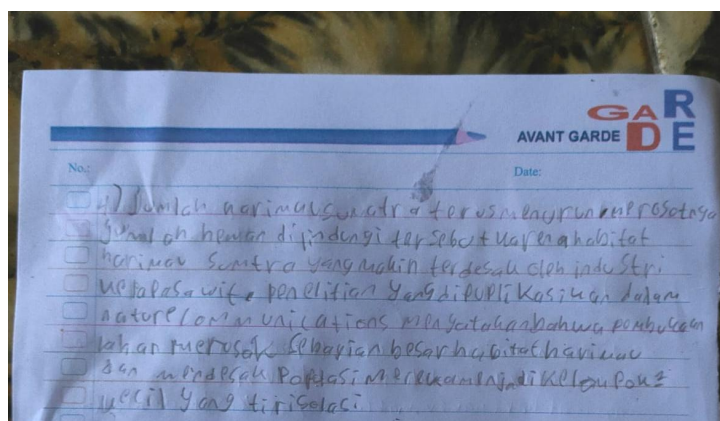 GARDE
AVANT GARDE
No.:
Date:
4) Jumlah harimau sumatra terus menurun merosotnya
Jumlah hewan dijindungi tersebut karena habitat
harimau Sumtra yang makin terdesak oleh industri
kelapa sawit. penelitian yang dipuplikasikan dalam
nature communications menyatakan bahwa pembukaan
lahan merusak sebarian besar habitat harimau
dan mendesak Poplasi mereka menjadi kelompok2
kecil yang tirisolasi